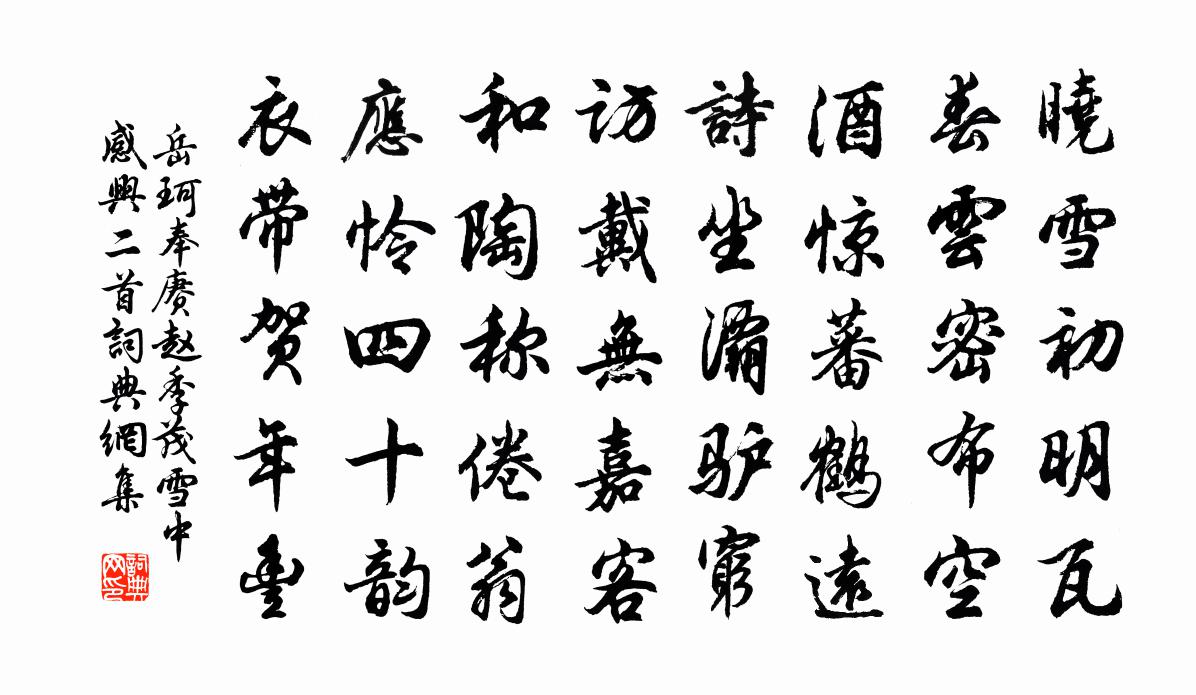 曉雪初明瓦
春雲密布空
酒惊蕃鶴遠
詩坐灞驴窮
訪戴無嘉客
和陶称倦翁
應怜四十韵
衣帶贺年豊
岳珂奉赓赵季茂雪中
感興二首詞典網集
詞典
网印